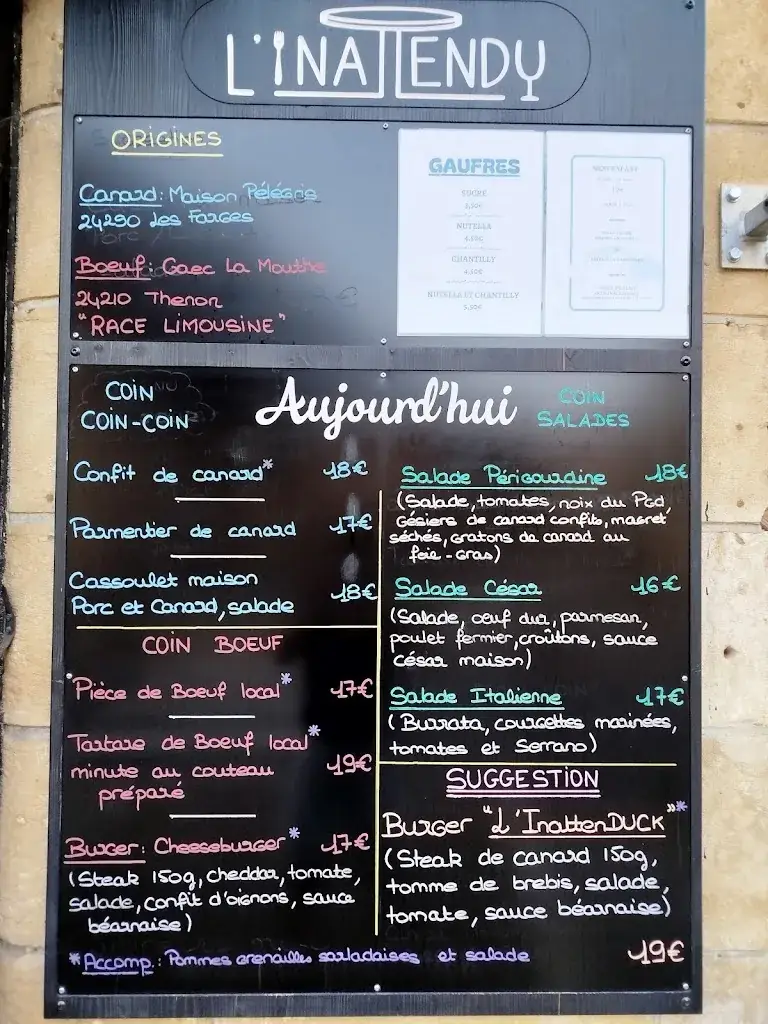 L'INATTENDU
ORIGINES
Canard: Maison Pélégris
24290 Les Farges
Boeuf: Gaec La Mouthe
24210 Thenon
"RACE LIMOUSINE"
GAUFRES
SUCRE
NUTELLA
4,50€
CHANTILLY
4,50€
NUTELLA ET CHANTILLY
5,50€
Aujourd'hui
COIN
COIN-COIN
Confit de canard* 18€
Parmentier de canard 17€
Cassoulet maison
Porc et Canard, salade 18€
COIN BOEUF
Pièce de Boeuf local* 17€
Tartare de Boeuf local*
minute au couteau 19€
préparé
Burger: Cheeseburger* 17€
(Steak 150g, cheddar, tomate,
salade, confit d'oignons, sauce
béarnaise)
COIN
SALADES
Salade Périgourdine 18€
(Salade, tomates, noix du Pgd,
Gésiers de canard confits, magret
séchés, gratons de canard au
foie-gras)
Salade César 16€
(Salade, oeuf dur, parmesan,
poulet fermier, croûtons, sauce
césar maison)
Salade Italienne 17€
(Burrata, courgettes marinées,
tomates et Serrano)
SUGGESTION
Burger "L'InattenDUCK"*
(Steak de canard 150g,
tomme de brebis, salade,
tomate, sauce béarnaise)
19€
*Accomp.: Pommes grenailles sarladaises et salade